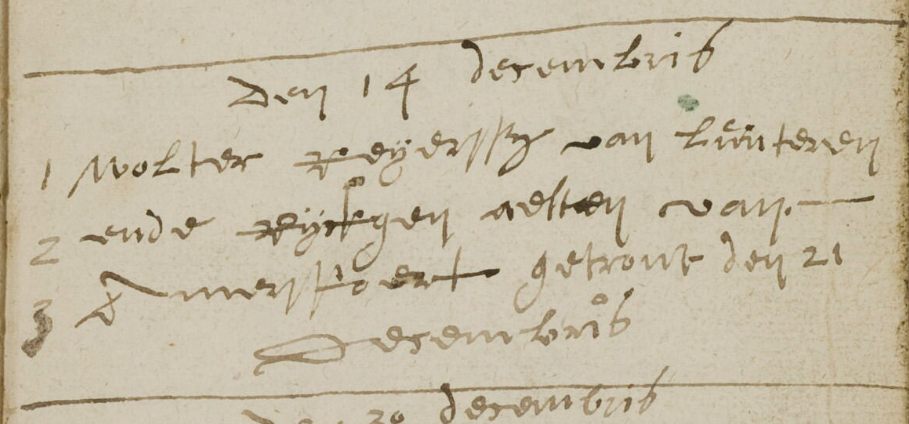 Den 14 decembris
1 Wolter Reyerssz van Lunteren
2 ende Rijckgen aelten van
3 Amersfoert getrout den 21
Decembris
30 decembris